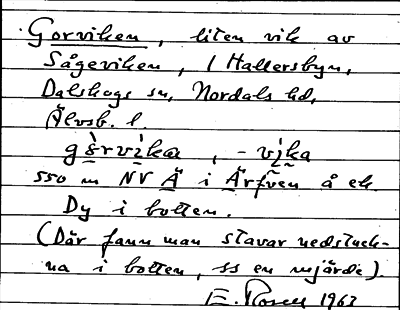 Gorviken, liten vik av
Sågeviken, i Hallersbyn,
Dalskogs sn, Nordals hd,
Älvsb. l.
gòrvìkan, -vìka
550 m NV Ä i Ärfven å ek.
Dy i botten.
(Där fann man stavar nedstuck-
na i botten, ss en mjärde).
E. Rosell 1963